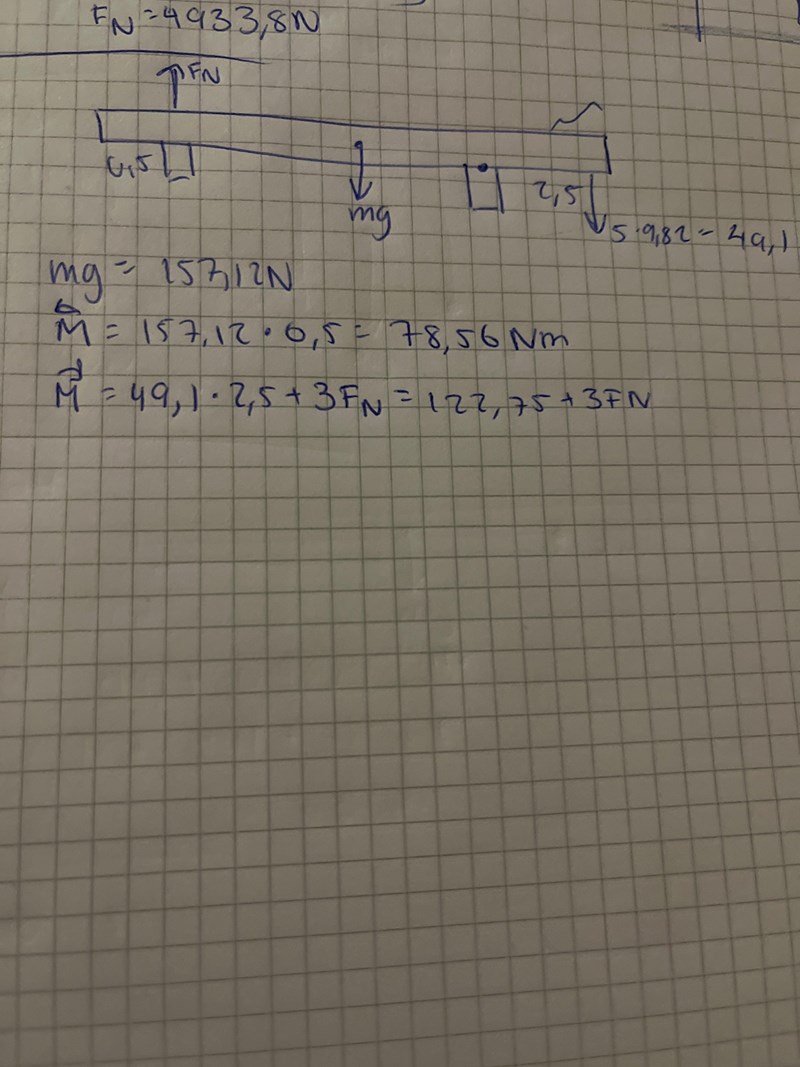 FN=4933,8N
FN
0,5
mg
2,5
5·9,82=49,1
mg= 157,12N
M = 157,12·0,5= 78,56 Nm
M = 49,1·2,5+3FN=122,75+3FN